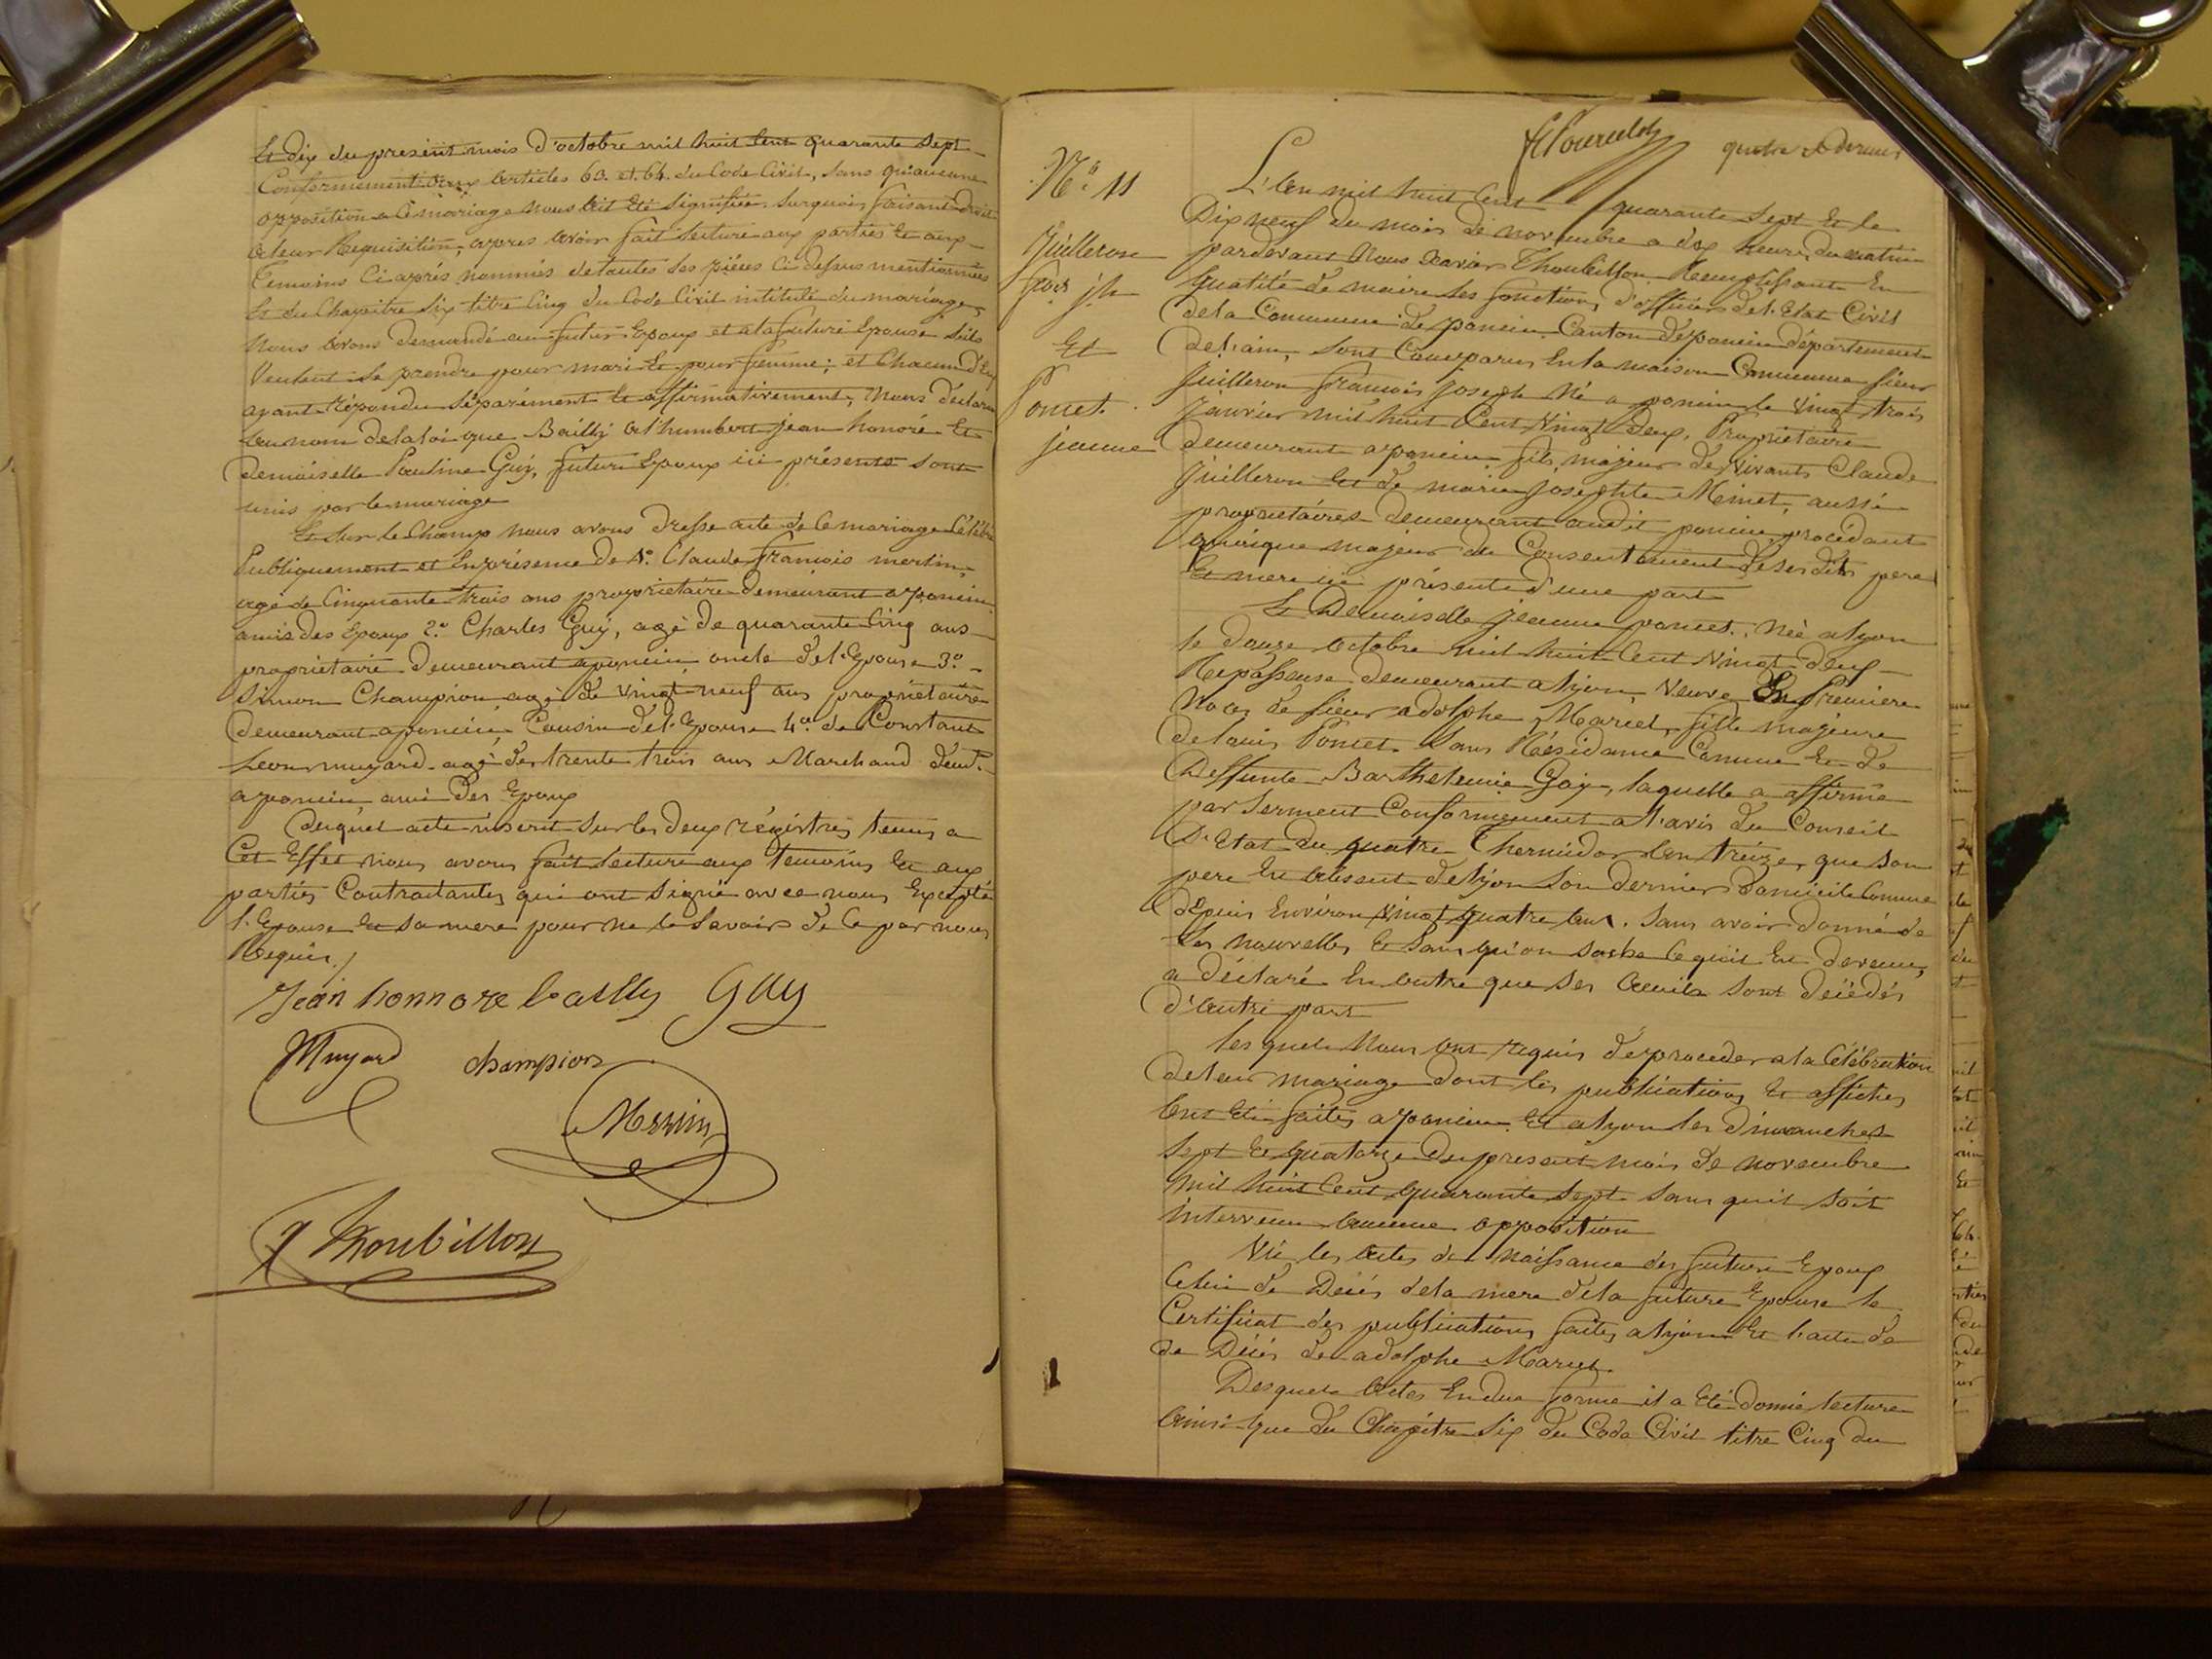 Le dix du present mois d'octobre mil huit Cent quarante Sept
Conformement aux Articles 63. et. 64. du Code Civil, Sans qu'aucune
opposition a Ce mariage nous ait Eté Signifiée. Surquoi, faisant droit
a leur Requisition, apres avoir fait lecture aux parties Et aux
Temoins Ci après nommés de toutes les piéces Ci dessus mentionnées
Et du Chapitre Six titre Cinq du Code Civil intitulé du mariage,
Nous avons demandé au futur Epoux et a la future Epouse S'ils
Veulent Se prendre pour mari Et pour femme; et Chacun d'Eux
ayant répondu Séparément Et affirmativement, Nous déclarons
au nom de la loi que Bailly Anthumbert jean honoré Et
demoiselle Pauline Guy, futurs Epoux ici présents Sont
unis par le mariage
Et Sur le Champ nous avons dressé acte de Ce mariage Célébré
Publiquement et En présence de 1.° Claude François merlin,
agé de Cinquante trois ans propriétaire demeurant a poncin
amis des Epoux 2.° Charles Guy, agé de quarante Cinq ans
propriétaire demeurant a poncin oncle de l'Epouse 3.°
Simon Champion, agé de vingt neuf ans propriétaire
demeurant a poncin Cousin de l'Epouse 4.° de Constant
Leon muyard agé de trente trois ans Marchand demt.
a poncin, ami des Epoux
Duquel acte inserit Sur les deux régistres tenus a
Cet Effet nous avons fait lecture aux temoins Et aux
parties Contractantes qui ont Signé avec nous Excepté
l'Epouse Et sa mere pour ne le Savoir de Ce par nous
Requis./
Jean honnore bailly Guy
Muyard champion
Merlin
X Thoubillon
quatre Et dernier
N.° 11
Juilleron
fçois jh
Et
Poncet.
jeanne
L'An mil huit Cent quarante Sept Et le
Dix neuf du mois de novembre a dix heures du matin
pardevant Nous Xavier Thoubillon Remplissant En
qualité de maire les fonctions d'officier de l'Etat Civil
de la Commune de poncin Canton de poncin département
de l'ain, sont Comparus En la maison Commune Sieur
Juilleron francois Joseph Né a poncin le vingt trois
Janvier mil huit Cent vingt deux, Propriétaire
demeurant a poncin fils majeur de vivants Claude
Juilleron Et de marie Josephte Minet, aussi
propriétaires demeurant audit poncin, procédant
quoique majeur du Consentement de Ses dits pere
Et mere ici présents d'une part
Et Demoiselle jeanne poncet. Née a lyon
le douze octobre mil huit Cent vingt deux
Repasseuse demeurant a lyon, Veuve En Premiere
Noces de Sieur adolphe Mariet, fille majeure
de louis Poncet Sans Résidence Connue Et de
Deffunte Barthelemie Gay, laquelle a affirmé
par Serment Conformement a l'avis du Conseil
d'Etat du quatre Thermidor An treize, que Son
pere Est absent de lyon Son dernier domicile Connu
depuis Environ vingt quatre ans. Sans avoir donné de
Ses nouvelles Et Sans qu'on Sache Ce qu'il Est devenu,
a déclaré En outre que Ses Aieuls Sont décédés
d'autre part
Les quels Nous ont requis de proceder a la Célébration
de leur mariage dont les publications Et affiches
Ont Eté faites a poncin. Et a lyon les dimanches
Sept Et quatorze du present mois de novembre
mil huit Cent quarante Sept Sans quil Soit
intervenu Aucune opposition
Vû les Actes de Naissance des futurs Epoux
Celui de Décés de la mere de la future Epouse le
Certificat des publications faites a lyon Et l'acte de
de Décés de adolphe Mariet.
Desquels Actes En due forme il a Eté donné lecture
Ainsi que du Chapitre Six du Code Civil titre Cinq du